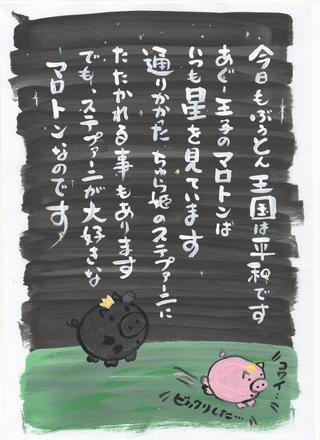 今日もぶぅとん王国は平和です
あぐー王子のマロトンは
いつも星を見ています
通りかかった ちゅら姫のステファーニに
たたかれる事もあります
でも、ステファーニが大好きな
マロトンなのです
コワイ…
ビックリした…